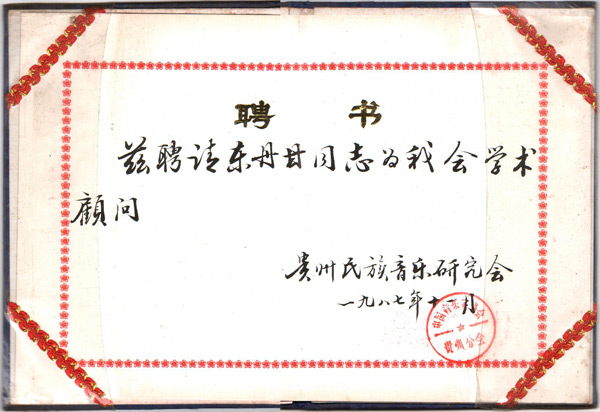 聘书
兹聘请东丹甘同志为我会学术
顧问
贵州民族音乐研究会
一九八七年十二月
中国音乐家协会
贵州分会